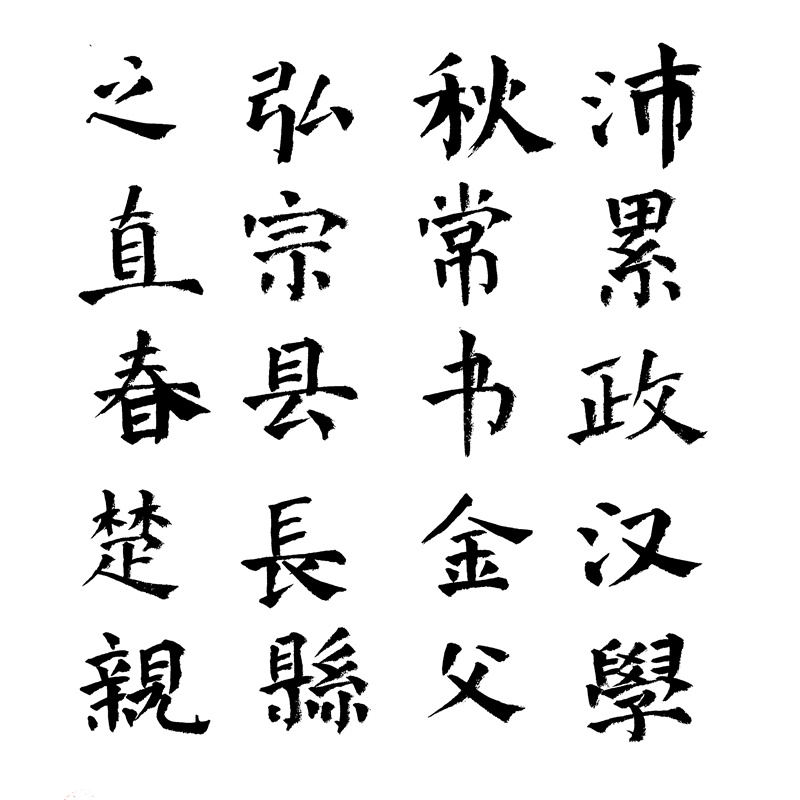 沛累政汉學
秋常书金父
弘宗县長縣
之直春楚親